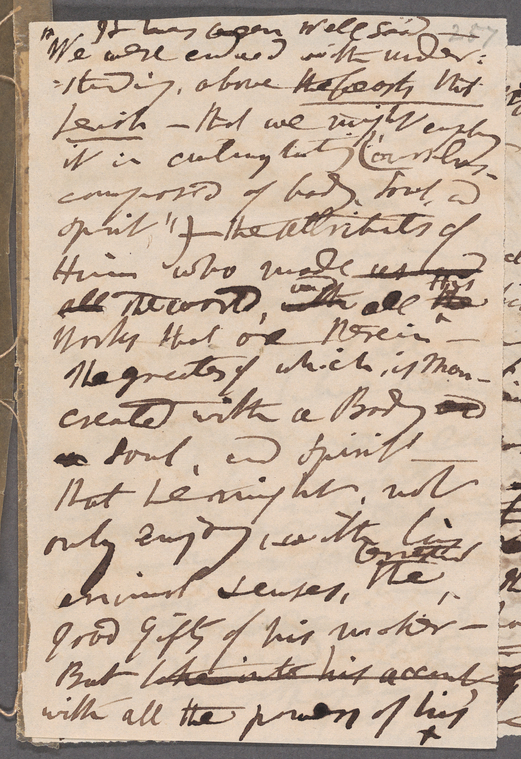 It has been well said 257
"We were endued with under=
=standing, above the beasts that
perish - that we might employ
it in contemplating (ourselves
composed of body, soul, and
spirit") - the attributes of
Him who made us and
all the world, and all the
Works that are therein -
the greatest of which, is Man -
created with a Body and
a Soul, and Spirit -
that he might, not
only enjoy, with his
animal senses, the created
good Gifts of his maker -
But take into his account
with all the powers of his
x